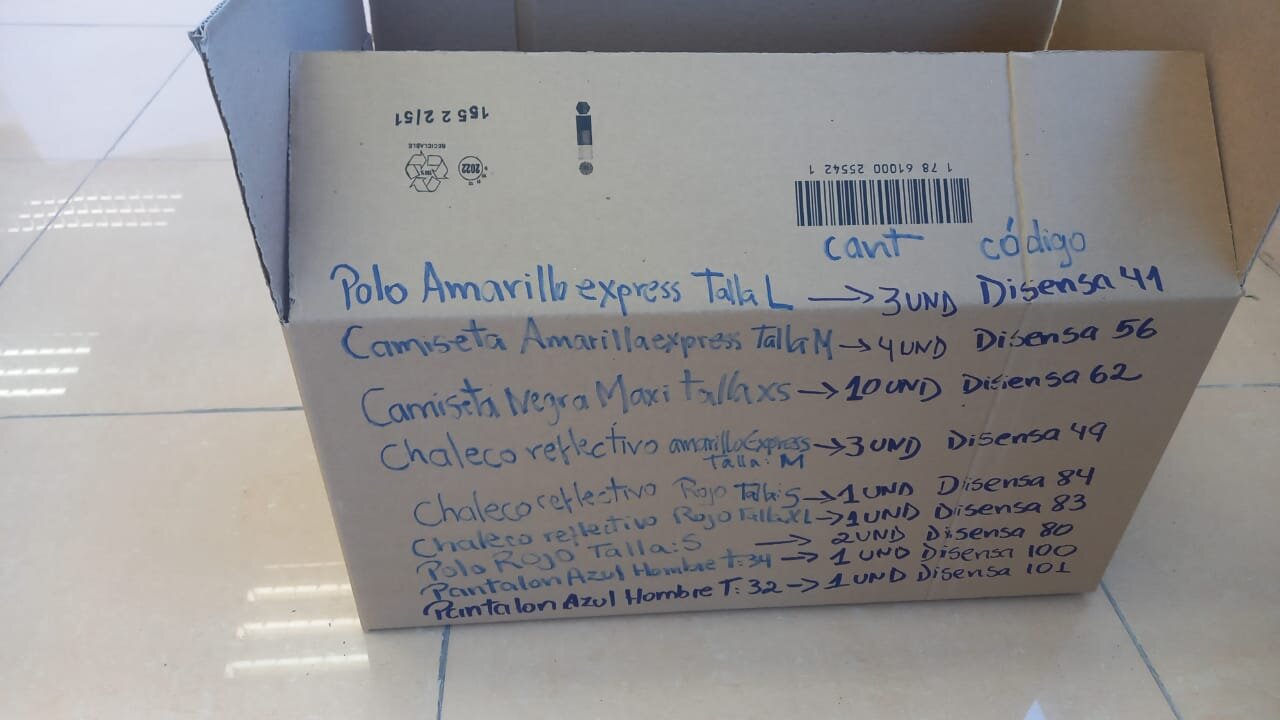 155 2 2/51
RECICLABLE
100%
2022
1 78 61000 25542 1
cant código
Polo Amarillo express Talla L → 3 UND Disensa 41
Camiseta Amarilla express Talla M → 4 UND Disensa 56
Camiseta Negra Maxi talla xs → 10 UND Disensa 62
Chaleco reflectivo amarillo Express → 3 UND Disensa 49
Talla: M
Chaleco reflectivo Rojo Talla: S → 1 UND Disensa 84
Chaleco reflectivo Rojo Talla XL → 1 UND Disensa 83
Polo Rojo Talla: S → 2 UND Disensa 80
Pantalon Azul Hombre T: 34 → 1 UND Disensa 100
Pantalon Azul Hombre T: 32 → 1 UND Disensa 101